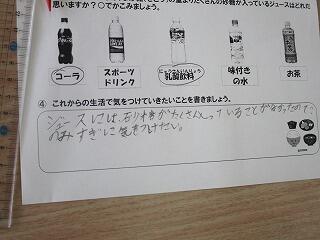 重たくさんの砂糖が入っているジュースはどれだ
思いますか？○でかこみましょう。
コーラ
スポーツ
ドリンク
乳酸飲料
味付き
の水
お茶
④ これからの生活で気をつけていきたいことを書きましょう。
ジュースには、石少糖がたくさん入っていることが分かったので、
のみすぎに気をつけたい。